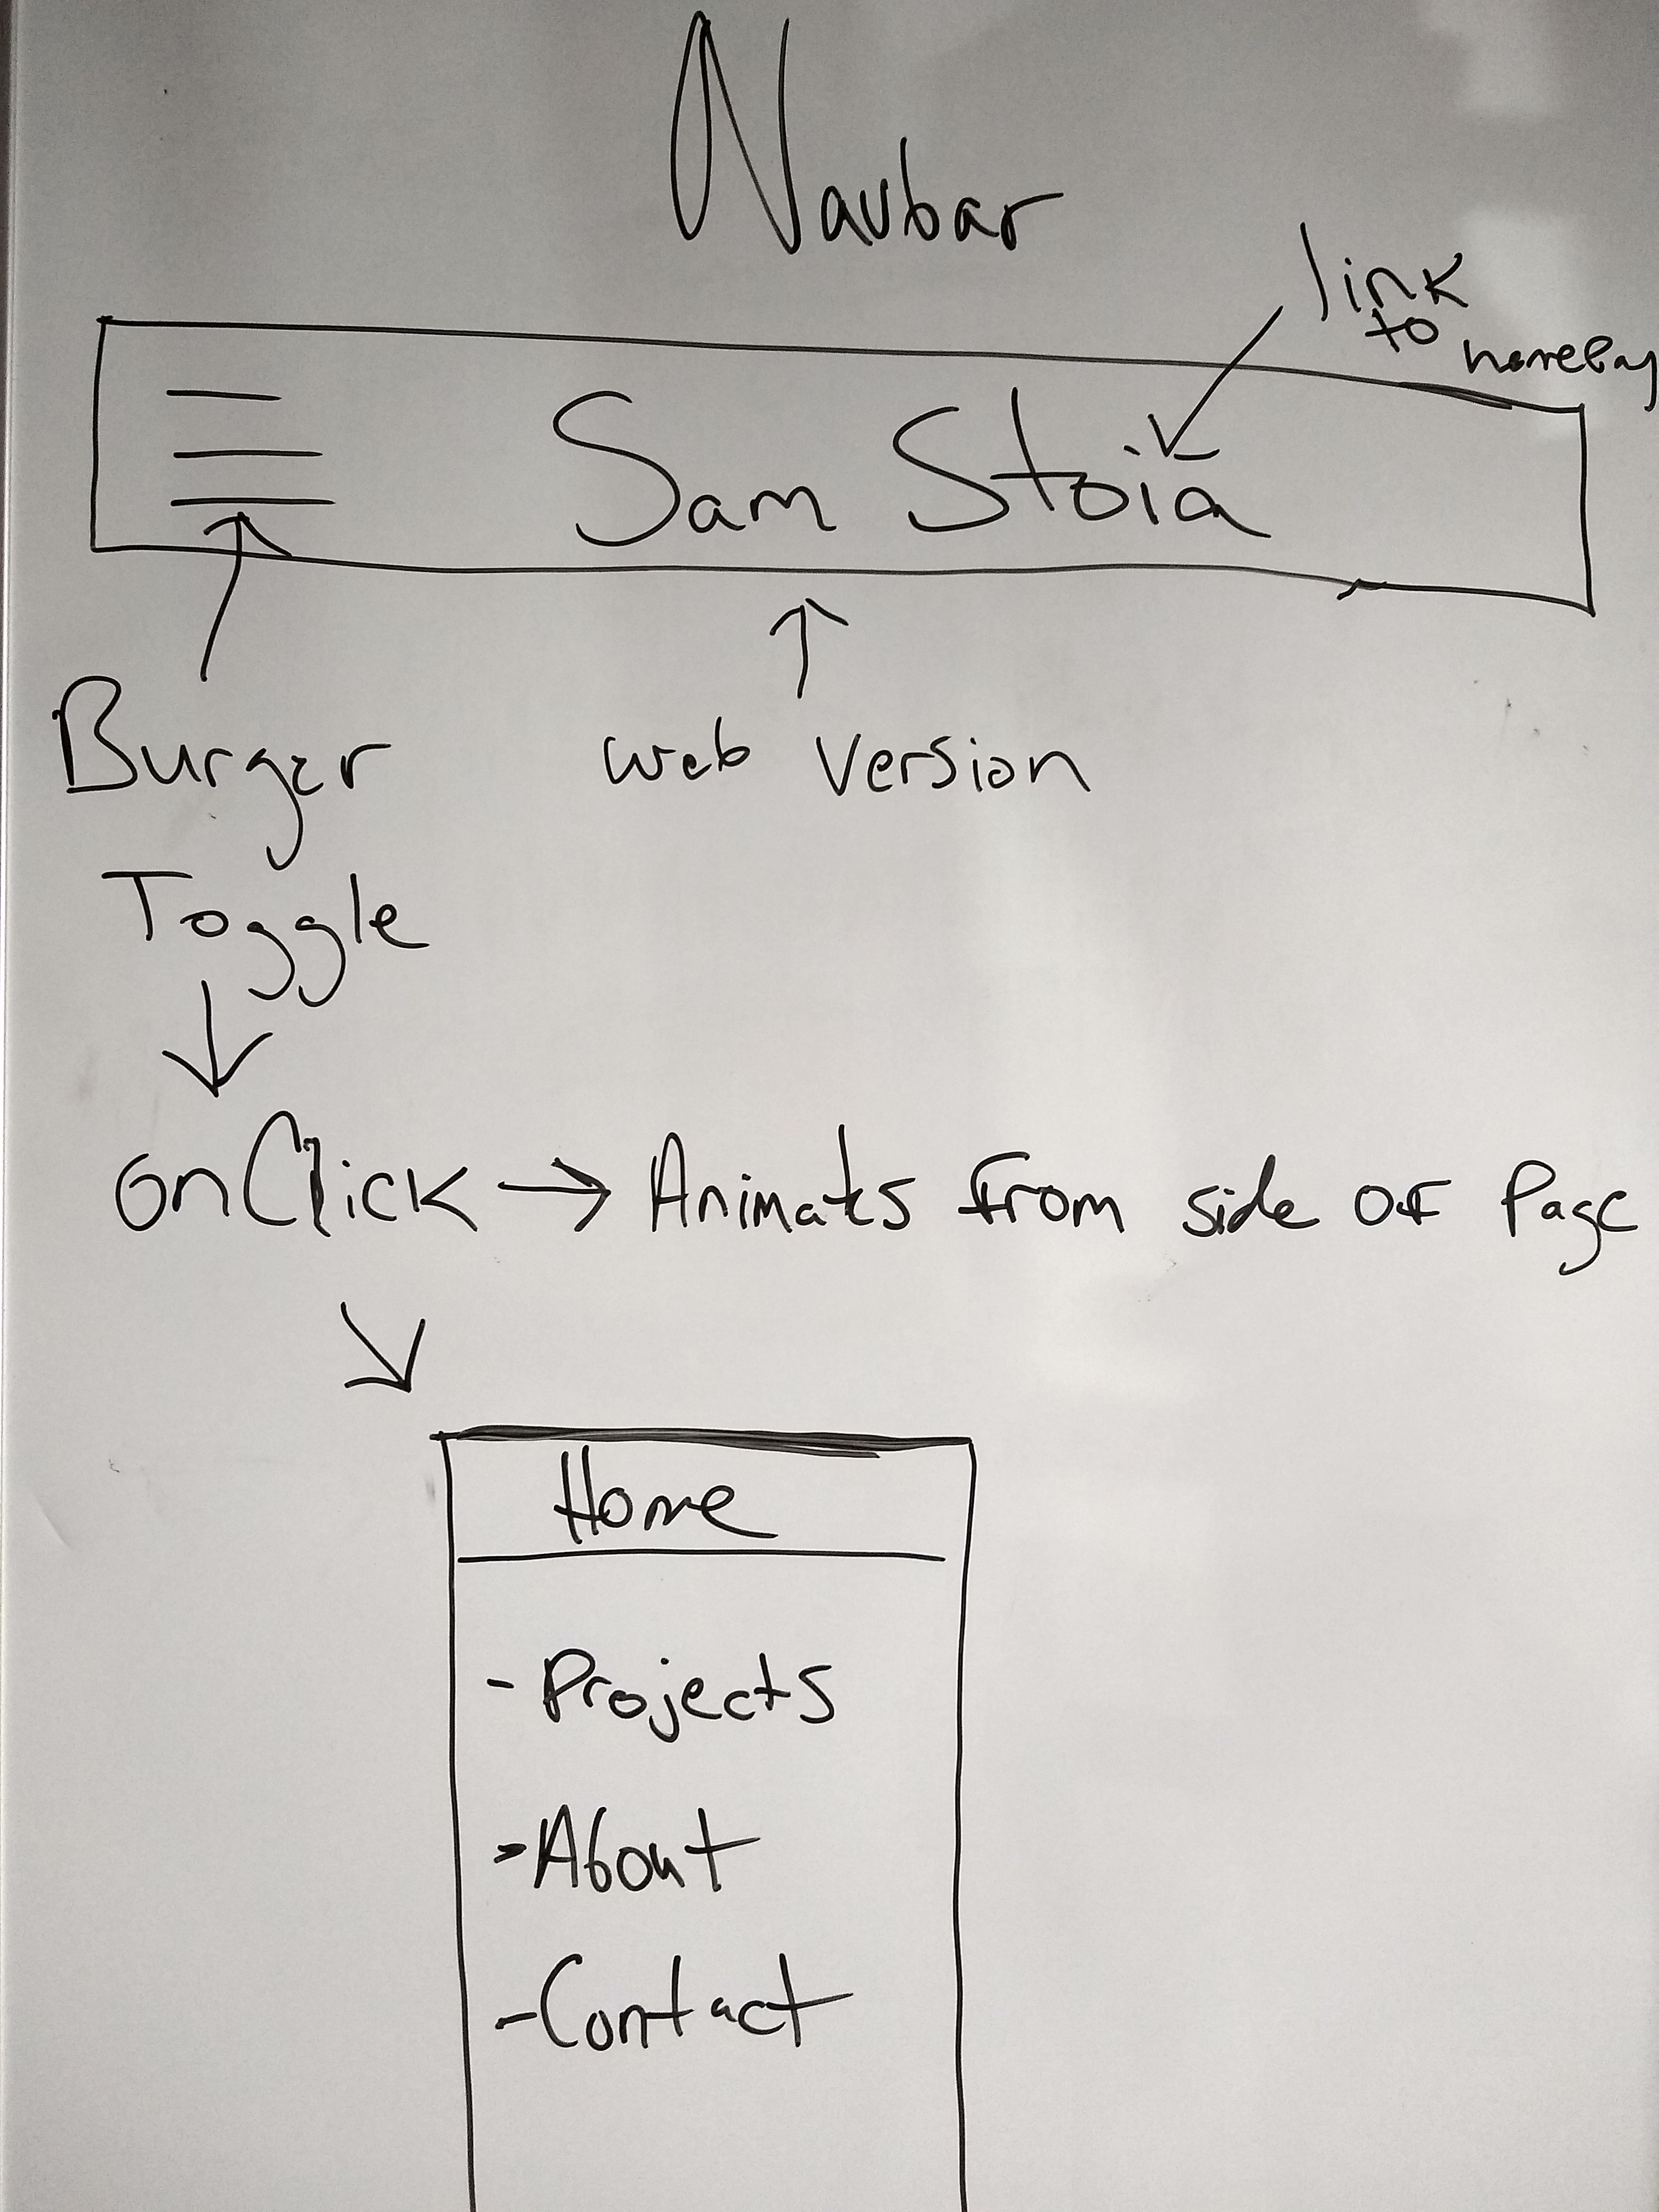 Navbar
link
to
Sam Stoia
Burger
Toggle
web version
onClick → Animates from side of Page
Home
- Projects
- About
- Contact